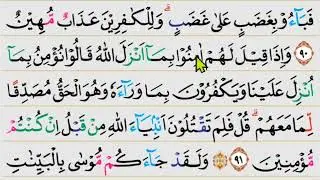 فَبَآءُوْ بِغَضَبٍ عَلٰى غَضَبٍ ؕ وَلِلْكٰفِرِيْنَ عَذَابٌ مُّهِيْنٌ
﴿۹۰﴾ وَاِذَا قِيْلَ لَهُمْ اٰمِنُوْا بِمَآ اَنْزَلَ اللّٰهُ قَالُوْا نُؤْمِنُ بِمَآ
اُنْزِلَ عَلَيْنَا وَيَكْفُرُوْنَ بِمَا وَرَآءَهٗ وَهُوَ الْحَقُّ مُصَدِّقًا
لِّمَا مَعَهُمْ ؕ قُلْ فَلِمَ تَقْتُلُوْنَ اَنْۢبِيَآءَ اللّٰهِ مِنْ قَبْلُ اِنْ كُنْتُمْ
مُّؤْمِنِيْنَ ﴿۹۱﴾ وَلَقَدْ جَآءَكُمْ مُّوْسٰى بِالْبَيِّنٰتِ